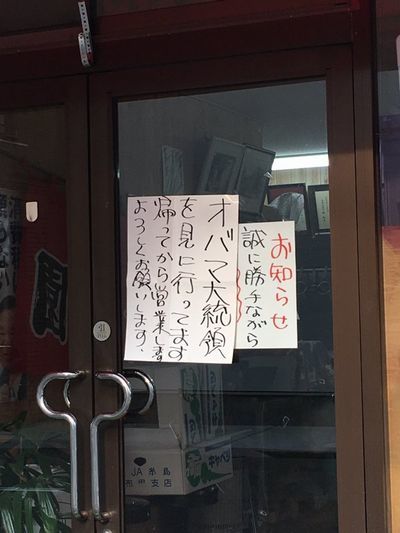 お知らせ
誠に勝手ながら
オバマ大統領
を見に行ってます
帰ってから営業します
よろしくお願いします。
JA糸島